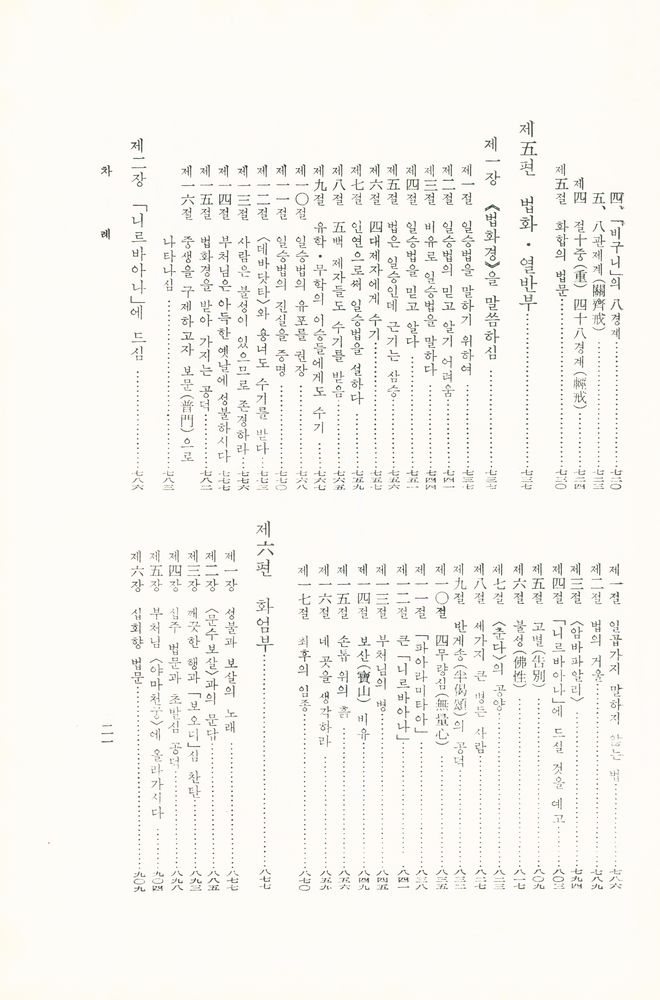 四、「비구니」의 八경계……七二〇
五、八관제계(關齊戒)……七二三
제四절 十중(重) 四十八경계(輕戒)……七二四
제五절 화합의 법문……七三〇
제五편 법화・열반부……七三七
제一장 《법화경》을 말씀하심……七三七
제一절 일승법을 말하기 위하여……七三七
제二절 일승법의 믿고 알기 어려움……七四一
제三절 비유로 일승법을 말하다……七四四
제四절 일승법을 믿고 알다……七五一
제五절 법은 일승인데 근기는 삼승……七五六
제六절 四대제자에게 수기……七五七
제七절 인연으로써 일승법을 설하다……七五九
제八절 五백 제자들도 수기를 받음……七六五
제九절 유학・무학의 이승들에게도 수기……七六七
제一〇절 일승법의 유포를 권장……七六八
제一一절 일승법의 진실을 증명……七七〇
제一二절 〈데바닷타〉와 용녀도 수기를 받다……七七三
제一三절 사람은 불성이 있으므로 존경하라……七七六
제一四절 부처님은 아득한 옛날에 성불하시다……七七七
제一五절 법화경을 받아 가지는 공덕……七八二
제一六절 중생을 구제하고자 보문(普門)으로
나타나심……七八三
제二장 「니르바아나」에 드심……七八六
차 례
제一절 일곱가지 말하지 않는 법……七八六
제二절 법의 거울……七八九
제三절 〈암바파알리〉……七九四
제四절 「니르바아나」에 드실 것을 예고……八〇三
제五절 고별(告別)……八〇九
제六절 불성(佛性)……八一七
제七절 〈춘다〉의 공양……八二三
제八절 세가지 큰 병든 사람……八二七
제九절 반게송(半偈頌)의 공덕……八三二
제一〇절 四무량심(無量心)……八三五
제一一절 「파아라미타아」……八三八
제一二절 큰 「니르바아나」……八四一
제一三절 부처님의 병……八四五
제一四절 보산(寶山) 비유……八四九
제一五절 손톱 위의 흙……八五六
제一六절 네 곳을 생각하라……八五九
제一七절 최후의 임종……八七〇
제六편 화엄부……八七七
제一장 성불과 보살의 노래……八七七
제二장 〈문수보살〉과의 문답……八八五
제三장 깨끗한 행과 「보오디」심 찬탄……八九八
제四장 십주 법문과 초발심 공덕……八九八
제五장 부처님 〈야마천궁〉에 올라가시다……九〇四
제六장 십회향 법문……九〇九
二一